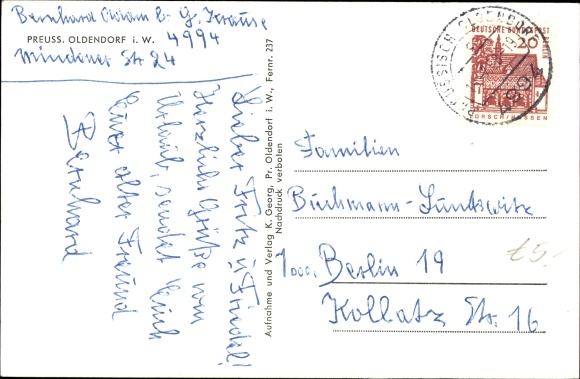 Bernhard Adam b. G. Krause
PREUSS. OLDENDORF i. W. 4994
Mindener Str 24
Lieber Fritz u. Friedel!
Herzliche Grüße vom
Urlaub, sendet Euch
Euer alter Freund
Bernhard
Aufnahme und Verlag K. Georg, Pr. Oldendorf i. W., Fernr. 237
Nachdruck verboten
PREUSSISCH OLDENDORF
4994
DEUTSCHE BUNDESPOST BERLIN
20
LORSCH/HESSEN
Familien
Buchmann-
1000 Berlin 19
Kollatz Str. 16
£5.-